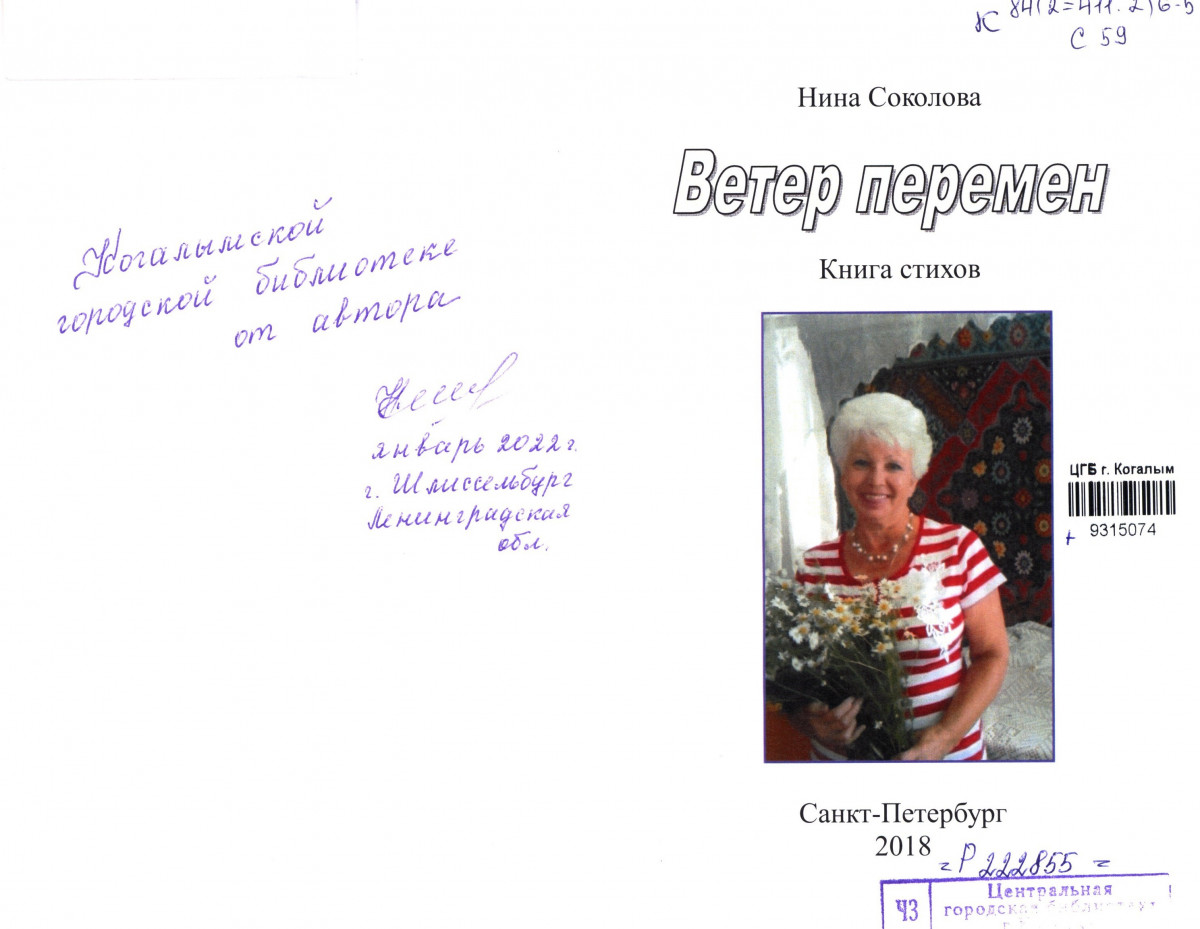 Когалымской
городской библиотеке
от автора
январь 2022 г.
г. Шлиссельбург
Ленинградская
обл.
К 84(2=411.2)6-5
С 59
Нина Соколова
Ветер перемен
Книга стихов
ЦГБ г. Когалым
9315074
Санкт-Петербург
2018
Р 222855
ЧЗ
Центральная
городская